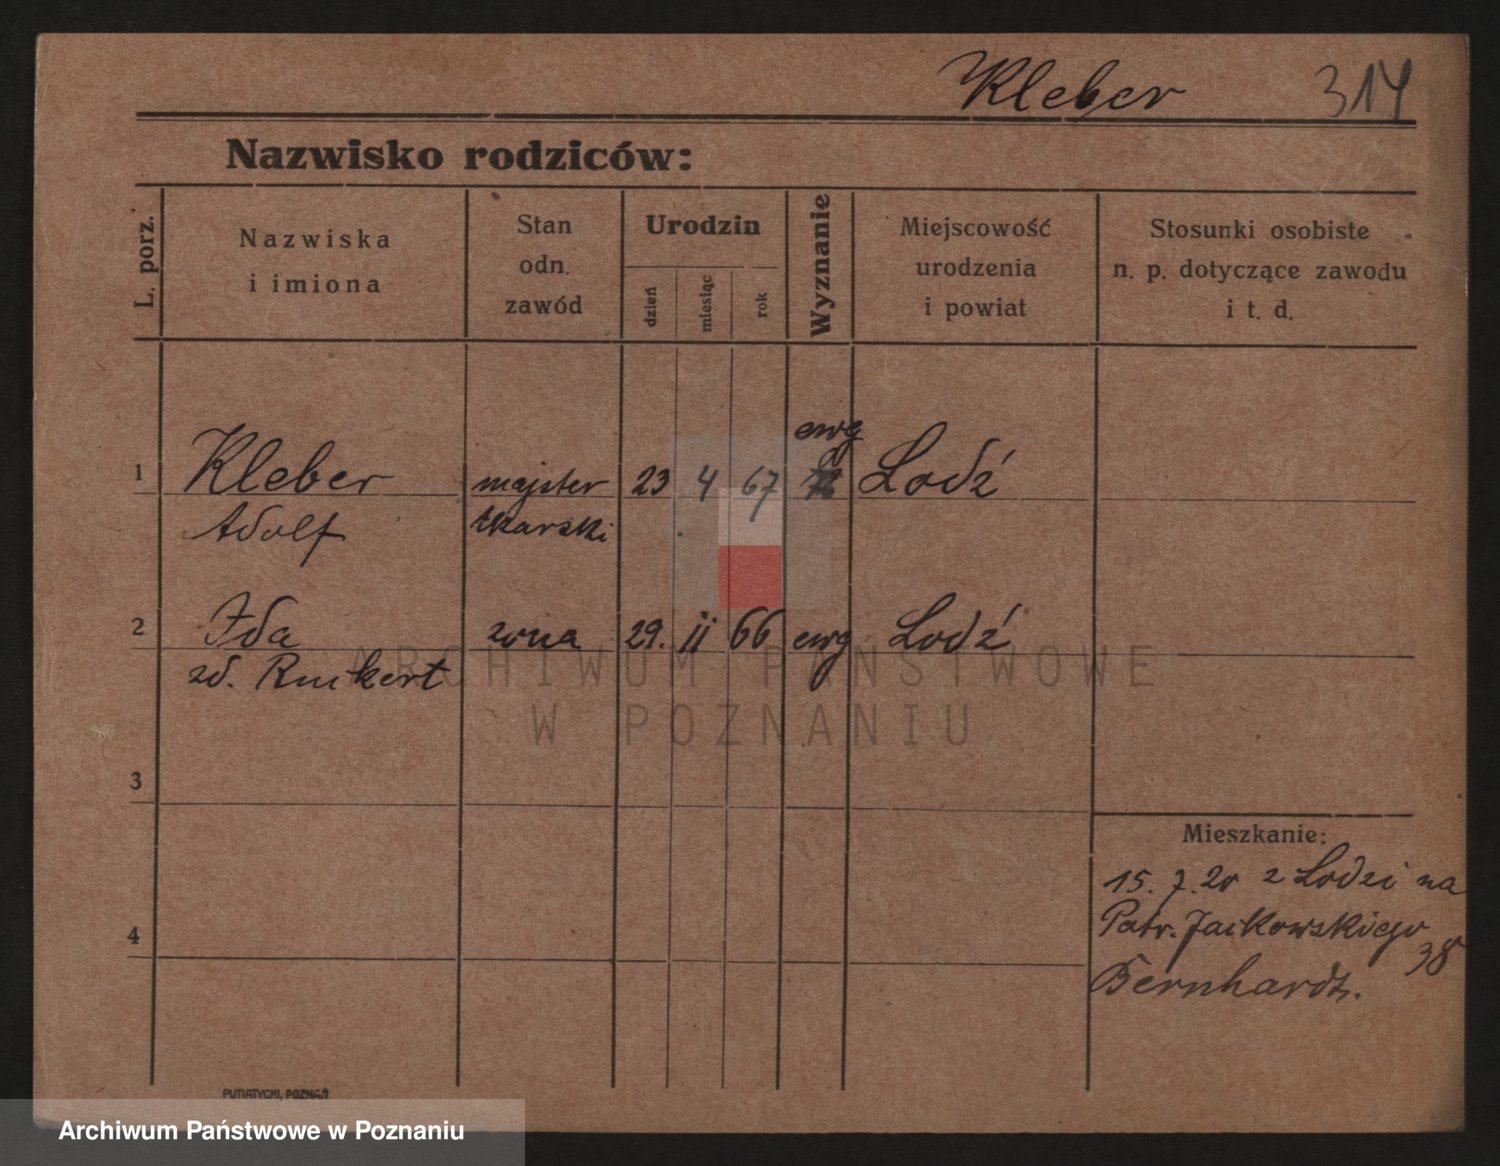 Kleber 314
Nazwisko rodziców:
L. porz.
Nazwiska
i imiona
Stan
odn.
zawód
Urodzin
dzień
miesiąc
rok
Wyznanie
Miejscowość
urodzenia
i powiat
Stosunki osobiste
n. p. dotyczące zawodu
i t. d.
ewg
1 Kleber majster 23 4 67 Lodź
Adolf tkarski
2 Ida zona 29. ii 66 ewg Lodź
zd.
ARCHIWUM PAŃSTWOWE
W POZNANIU
3
Mieszkanie:
15. 7. 20 z Lodzi na
4 Patr. Jackowskiego
38
Bernhardt.
PUTIATYCKI, POZNAŃ
Archiwum Państwowe w Poznaniu